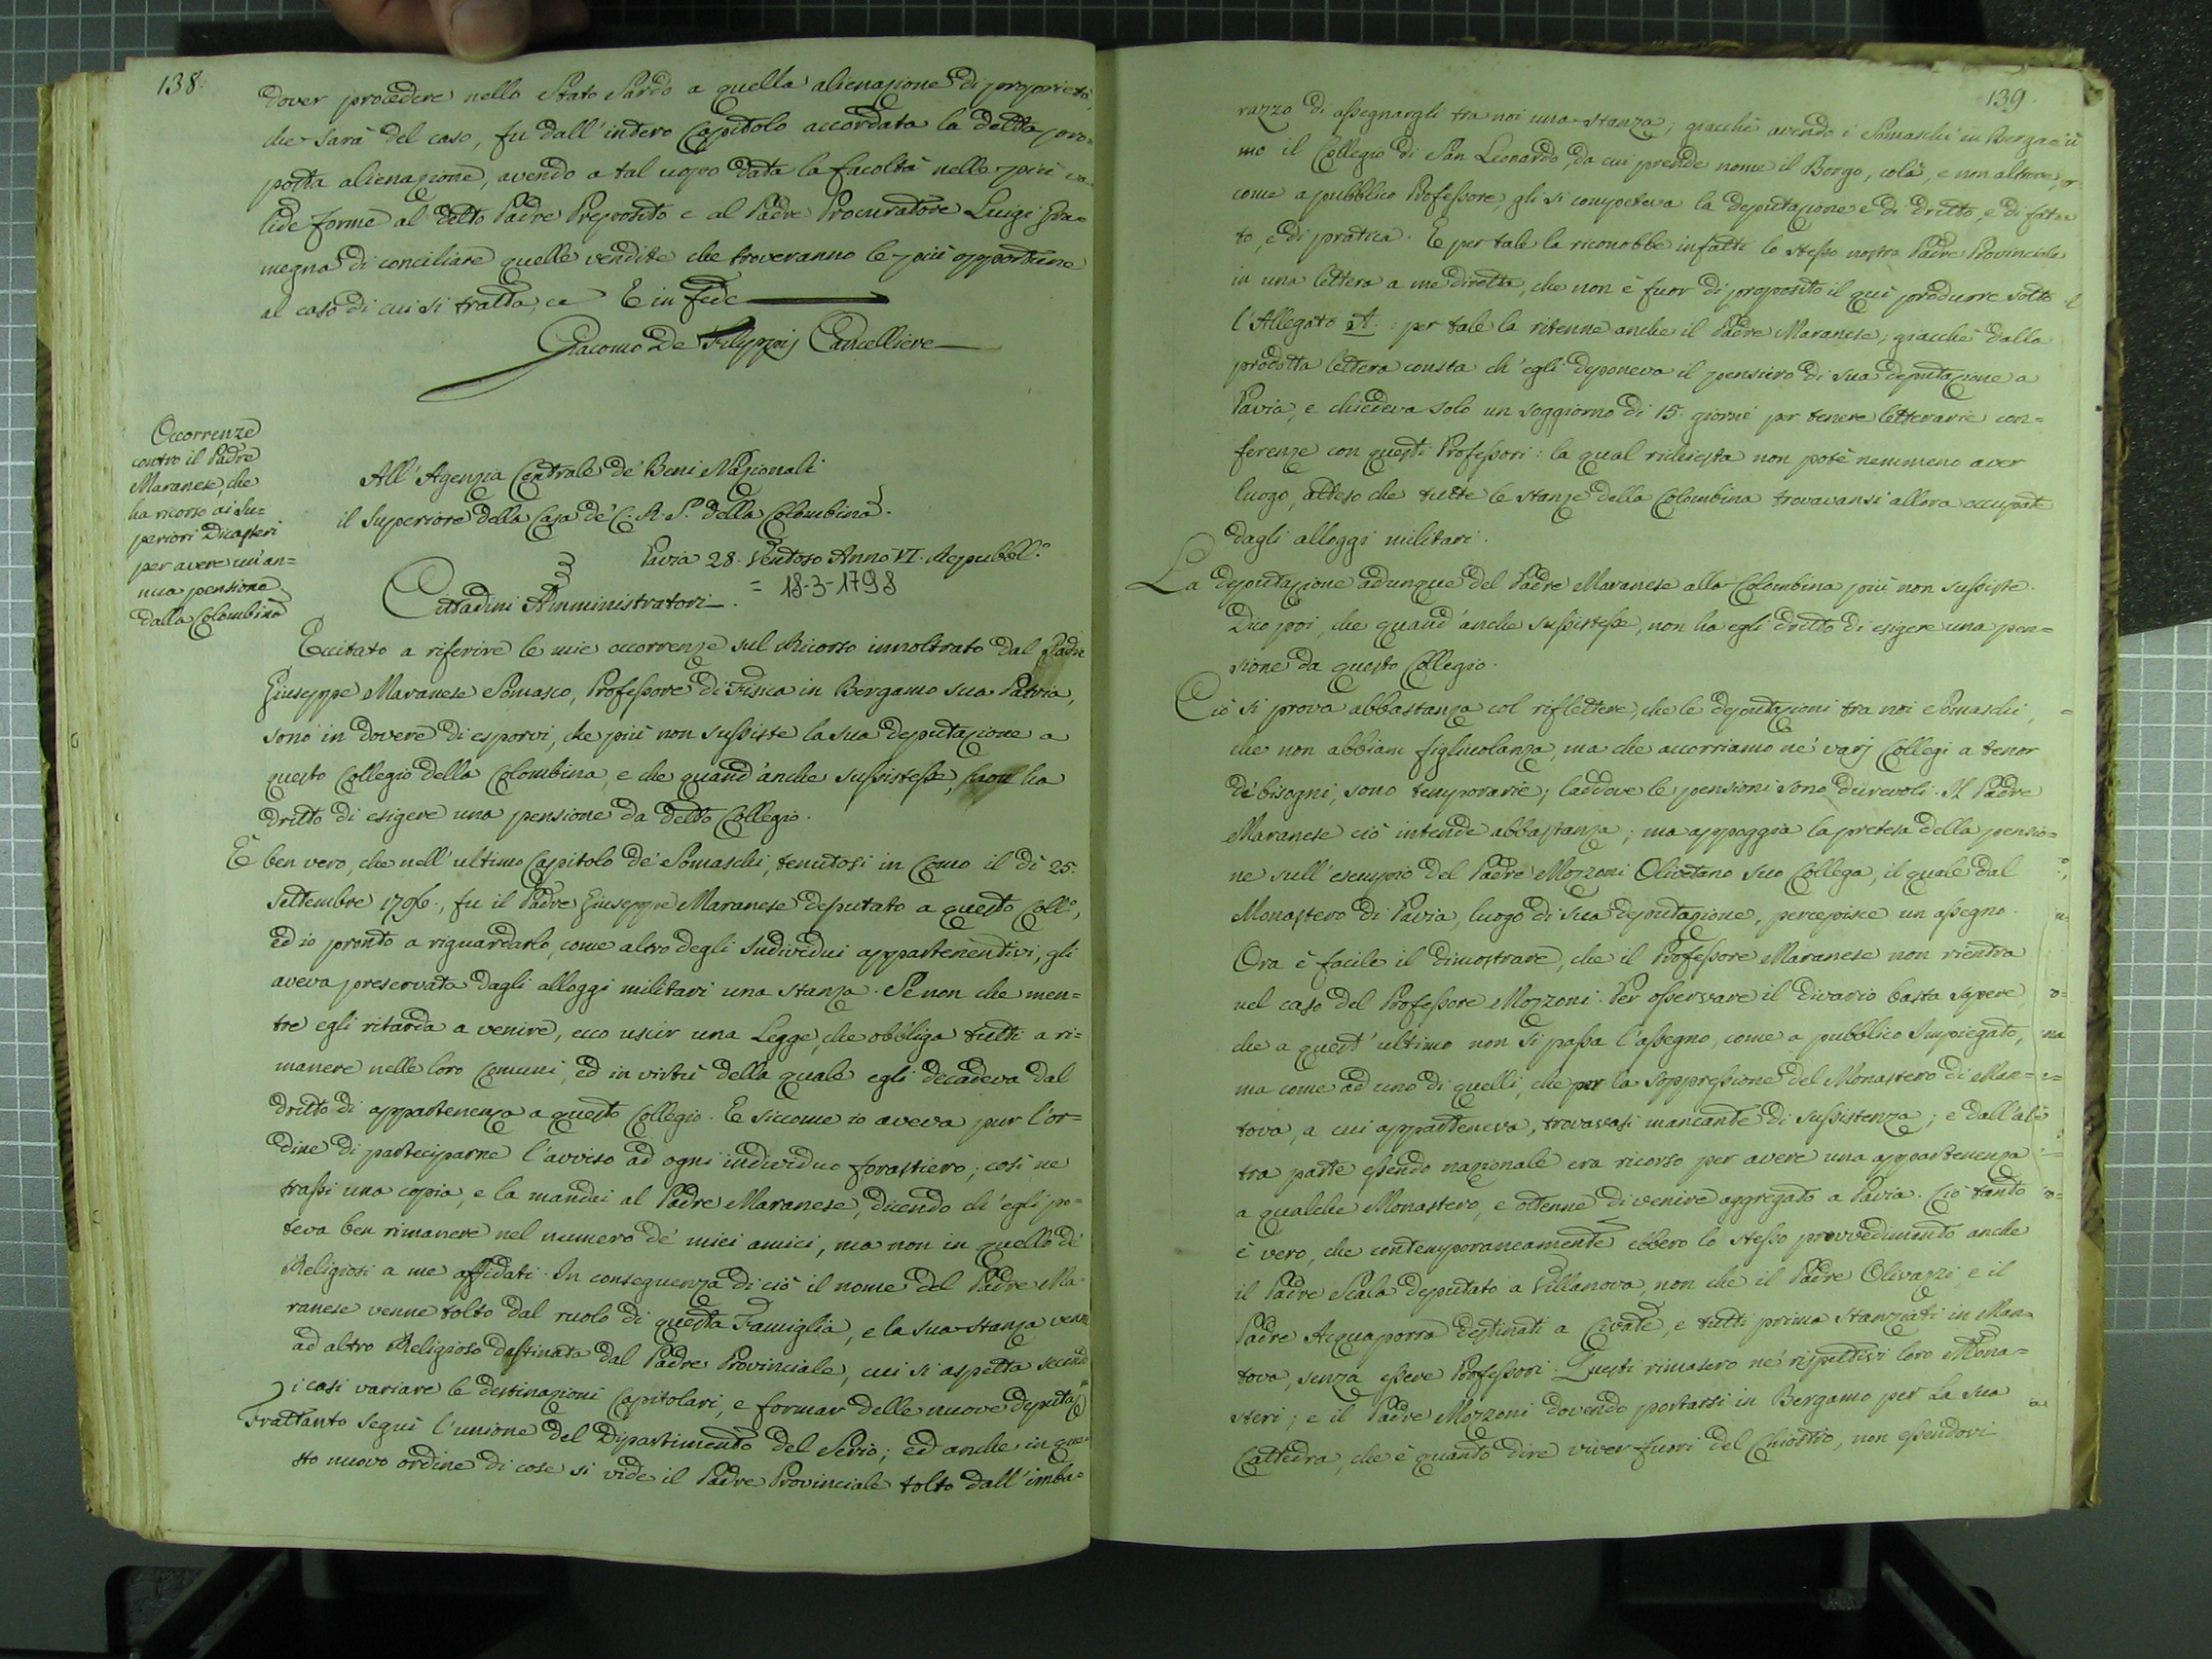 138.
dover procedere nello Stato Sardo a quella alienazione di proprietà,
che sarà del caso, fu dall'intero Capitolo accordata la detta pro=
posta alienazione, avendo a tal uopo data la facoltà nelle più va=
lide forme al detto Padre Preposito e al Padre Procuratore Luigi Gra=
megna di conciliare quelle vendite che troveranno le più opportune
al caso di cui si tratta, ec E in fede
Giacomo De Filippij Cancelliere
Occorrenze
contro il Padre
Maranese, che
ha ricorso ai Su=
periori Dicasteri
per avere un'an=
nua pensione
dalla Colombina
All'Agenzia Centrale de' Beni Nazionali
il Superiore della Casa de' C. R. S. della Colombina.
Pavia 28. Ventoso Anno VI. Repubbl.º
= 18-3-1798
Cittadini Amministratori.
Eccitato a riferire le mie occorrenze sul Ricorso innoltrato dal Padre
Giuseppe Maranese Somasco, Professore di Fisica in Bergamo sua Patria,
sono in dovere di esporvi, che più non sussiste la sua deputazione a
questo Collegio della Colombina, e che quand'anche sussistesse, non ha
dritto di esigere una pensione da detto Collegio.
È ben vero, che nell'ultimo Capitolo de' Somaschi, tenutosi in Como il dì 25.
Settembre 1796., fu il Padre Giuseppe Maranese deputato a questo Coll.º,
ed io pronto a riguardarlo, come altro degli Individui appartenentivi, gli
aveva preservata dagli alloggi militari una stanza. Se non che men=
tre egli ritarda a venire, ecco uscir una Legge, che obbliga tutti a ri=
manere nelle loro Comuni, ed in virtù della quale egli decadeva dal
dritto di appartenenza a questo Collegio. E siccome io aveva pur l'or=
dine di parteciparne l'avviso ad ogni individuo forastiero; così ne
trassi una copia, e la mandai al Padre Maranese, dicendo ch'egli po=
teva ben rimanere nel numero de' miei amici, ma non in quello de'
Religiosi a me affidati. In conseguenza di ciò il nome del Padre Ma=
ranese venne tolto dal ruolo di questa Famiglia, e la sua stanza venne
ad altro Religioso destinata dal Padre Provinciale, cui si aspetta secondo
i casi variare le destinazioni Capitolari, e formar delle nuove deputaz.
Frattanto seguì l'unione del Dipartimento del Serio; ed anche in que=
sto nuovo ordine di cose si vide il Padre Provinciale tolto dall'imba=
139.
razzo di assegnargli tra noi una stanza; giacchè avendo i Somaschi in Berga=
mo il Collegio di San Leonardo, da cui prende nome il Borgo, colà, e non altrove,
come a pubblico Professore, gli si competeva la deputazione e di dritto, e di fat=
to, e di pratica. E per tale la riconobbe infatti lo stesso nostro Padre Provinciale
in una lettera a me diretta, che non è fuor di proposito il quì produrre sotto
l'Allegato A.: per tale la ritenne anche il Padre Maranese; giacchè dalla
prodotta lettera consta ch'egli deponeva il pensiero di sua deputazione a
Pavia, e chiedeva solo un soggiorno di 15. giorni per tenere letterarie con=
ferenze con questi Professori: la qual richiesta non potè nemmeno aver
luogo, atteso che tutte le stanze della Colombina trovavansi allora occupate
dagli alloggi militari.
La deputazione adunque del Padre Maranese alla Colombina più non sussiste.
Dico poi, che quand'anche sussistesse, non ha egli dritto di esigere una pen=
sione da questo Collegio.
Ciò si prova abbastanza col riflettere, che le deputazioni tra noi Somaschi,
che non abbiam figliuolanza, ma che accorriamo ne' varj Collegi a tenor
de' bisogni, sono temporarie; laddove le pensioni sono durevoli. Il Padre
Maranese ciò intende abbastanza; ma appoggia la pretesa della pensio=
ne sull'esempio del Padre Mozzoni Olivetano suo Collega, il quale dal
Monastero di Pavia, luogo di sua deputazione, percepisce un assegno.
Ora è facile il dimostrare, che il Professore Maranese non rientra
nel caso del Professore Mozzoni. Per osservare il divario basta sapere,
che a quest'ultimo non si passa l'assegno, come a pubblico Impiegato,
ma come ad uno di quelli, che per la soppressione del Monastero di Man=
tova, a cui apparteneva, trovavasi mancante di sussistenza; e dall'al=
tra parte essendo nazionale era ricorso per avere una appartenenza
a qualche Monastero, e ottenne di venire aggregato a Pavia. Ciò tanto
è vero, che contemporaneamente ebbero lo stesso provvedimento anche
il Padre Scala deputato a Villanova, non che il Padre Olivazzi, e il
Padre Acquaporra destinati a Civate, e tutti prima stanziati in Man=
tova, senza essere Professori. Questi rimasero ne' rispettivi loro Mona=
steri; e il Padre Mozzoni dovendo portarsi in Bergamo per la sua
Cattedra, che è quanto dire viver fuori del Chiostro, non essendovi